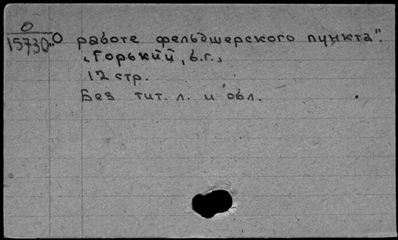 О
15730 "О работе фельдшерского пункта".
"Горький, б.г.,
12 стр.
Без тит. л. и обл.